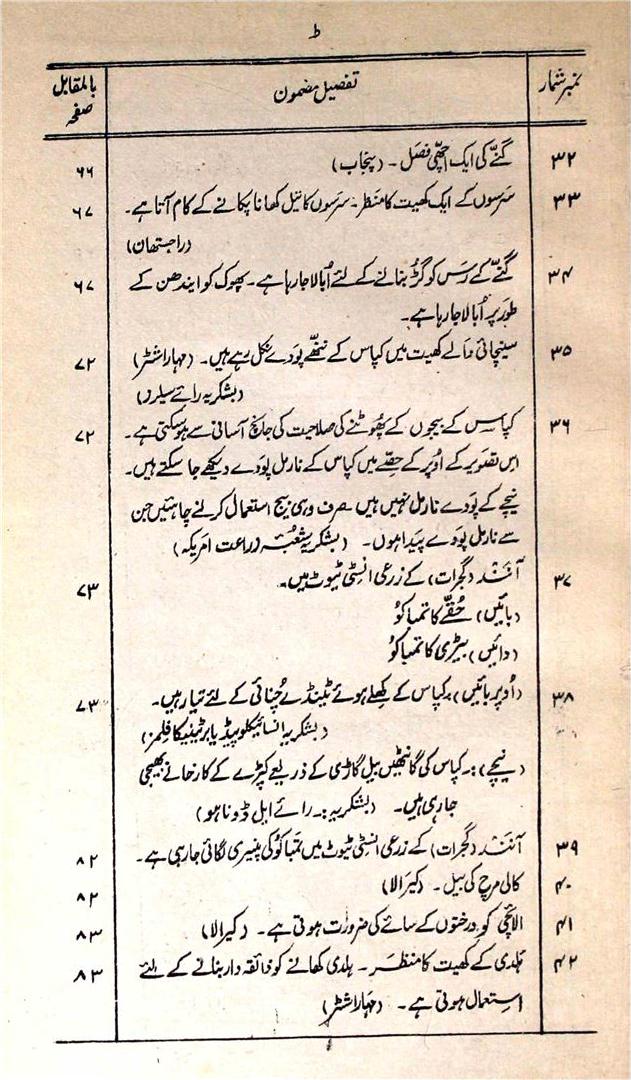 ط
نمبر شمار تفصیل مضمون بالمقابل صفحہ
۳۲ گنّے کی ایک اچھی فصل۔ (پنجاب) ۶۶
۳۳ سرسوں کے ایک کھیت کا منظر۔ سرسوں کا تیل کھانا پکانے کے کام آتا ہے۔ ۶۷
(راجستھان)
۳۴ گنّے کے رس کو گڑ بنانے کے لئے اُبالا جارہا ہے۔ پھوک کو ایندھن کے ۶۷
طور پر اُبالا جارہا ہے۔
۳۵ سینچائی والے کھیت میں کپاس کے ننھّے پودے نکل رہے ہیں۔ (مہاراشٹر) ۷۲
(بشکریہ رائے سیلرز)
۳۶ کپاس کے بیجوں کے پھُوٹنے کی صلاحیت کی جانچ آسانی سے ہوسکتی ہے۔ ۷۲
اس تصویر کے اُوپر کے حصّے میں کپاس کے نارمل پودے دیکھے جا سکتے ہیں۔
نیچے کے پودے نارمل نہیں ہیں۔ صرف وہی بیج استعمال کرنے چاہئیں جن
سے نارمل پودے پیدا ہوں۔ (بشکریہ شعبۂ زراعت امریکہ)
۳۷ آنند (گجرات) کے زرعی انسٹی ٹیوٹ میں۔ ۷۳
(بائیں) حُقّے کا تمباکو
(دائیں) بیڑی کا تمباکو
۳۸ (اُوپر بائیں):۔ کپاس کے کھلے ہوئے ٹینڈے چُنائی کے لئے تیار ہیں۔ ۷۳
(بشکریہ انسائیکلوپیڈیا برٹینیکا فلمز)
(نیچے):۔ کپاس کی گانٹھیں بیل گاڑی کے ذریعے کپڑے کے کارخانے بھیجی
جارہی ہیں۔ (بشکریہ:۔ رائے ایل ڈوناہو)
۳۹ آنند (گجرات) کے زرعی انسٹی ٹیوٹ میں تمباکو کی پنیری لگائی جارہی ہے۔ ۸۲
۴۰ کالی مرچ کی بیل۔ (کیرالا) ۸۲
۴۱ الائچی کو درختوں کے سائے کی ضرورت ہوتی ہے۔ (کیرالا) ۸۳
۴۲ ہلدی کے کھیت کا منظر۔ ہلدی کھانے کو ذائقہ دار بنانے کے لئے ۸۳
استعمال ہوتی ہے۔ (مہاراشٹر)